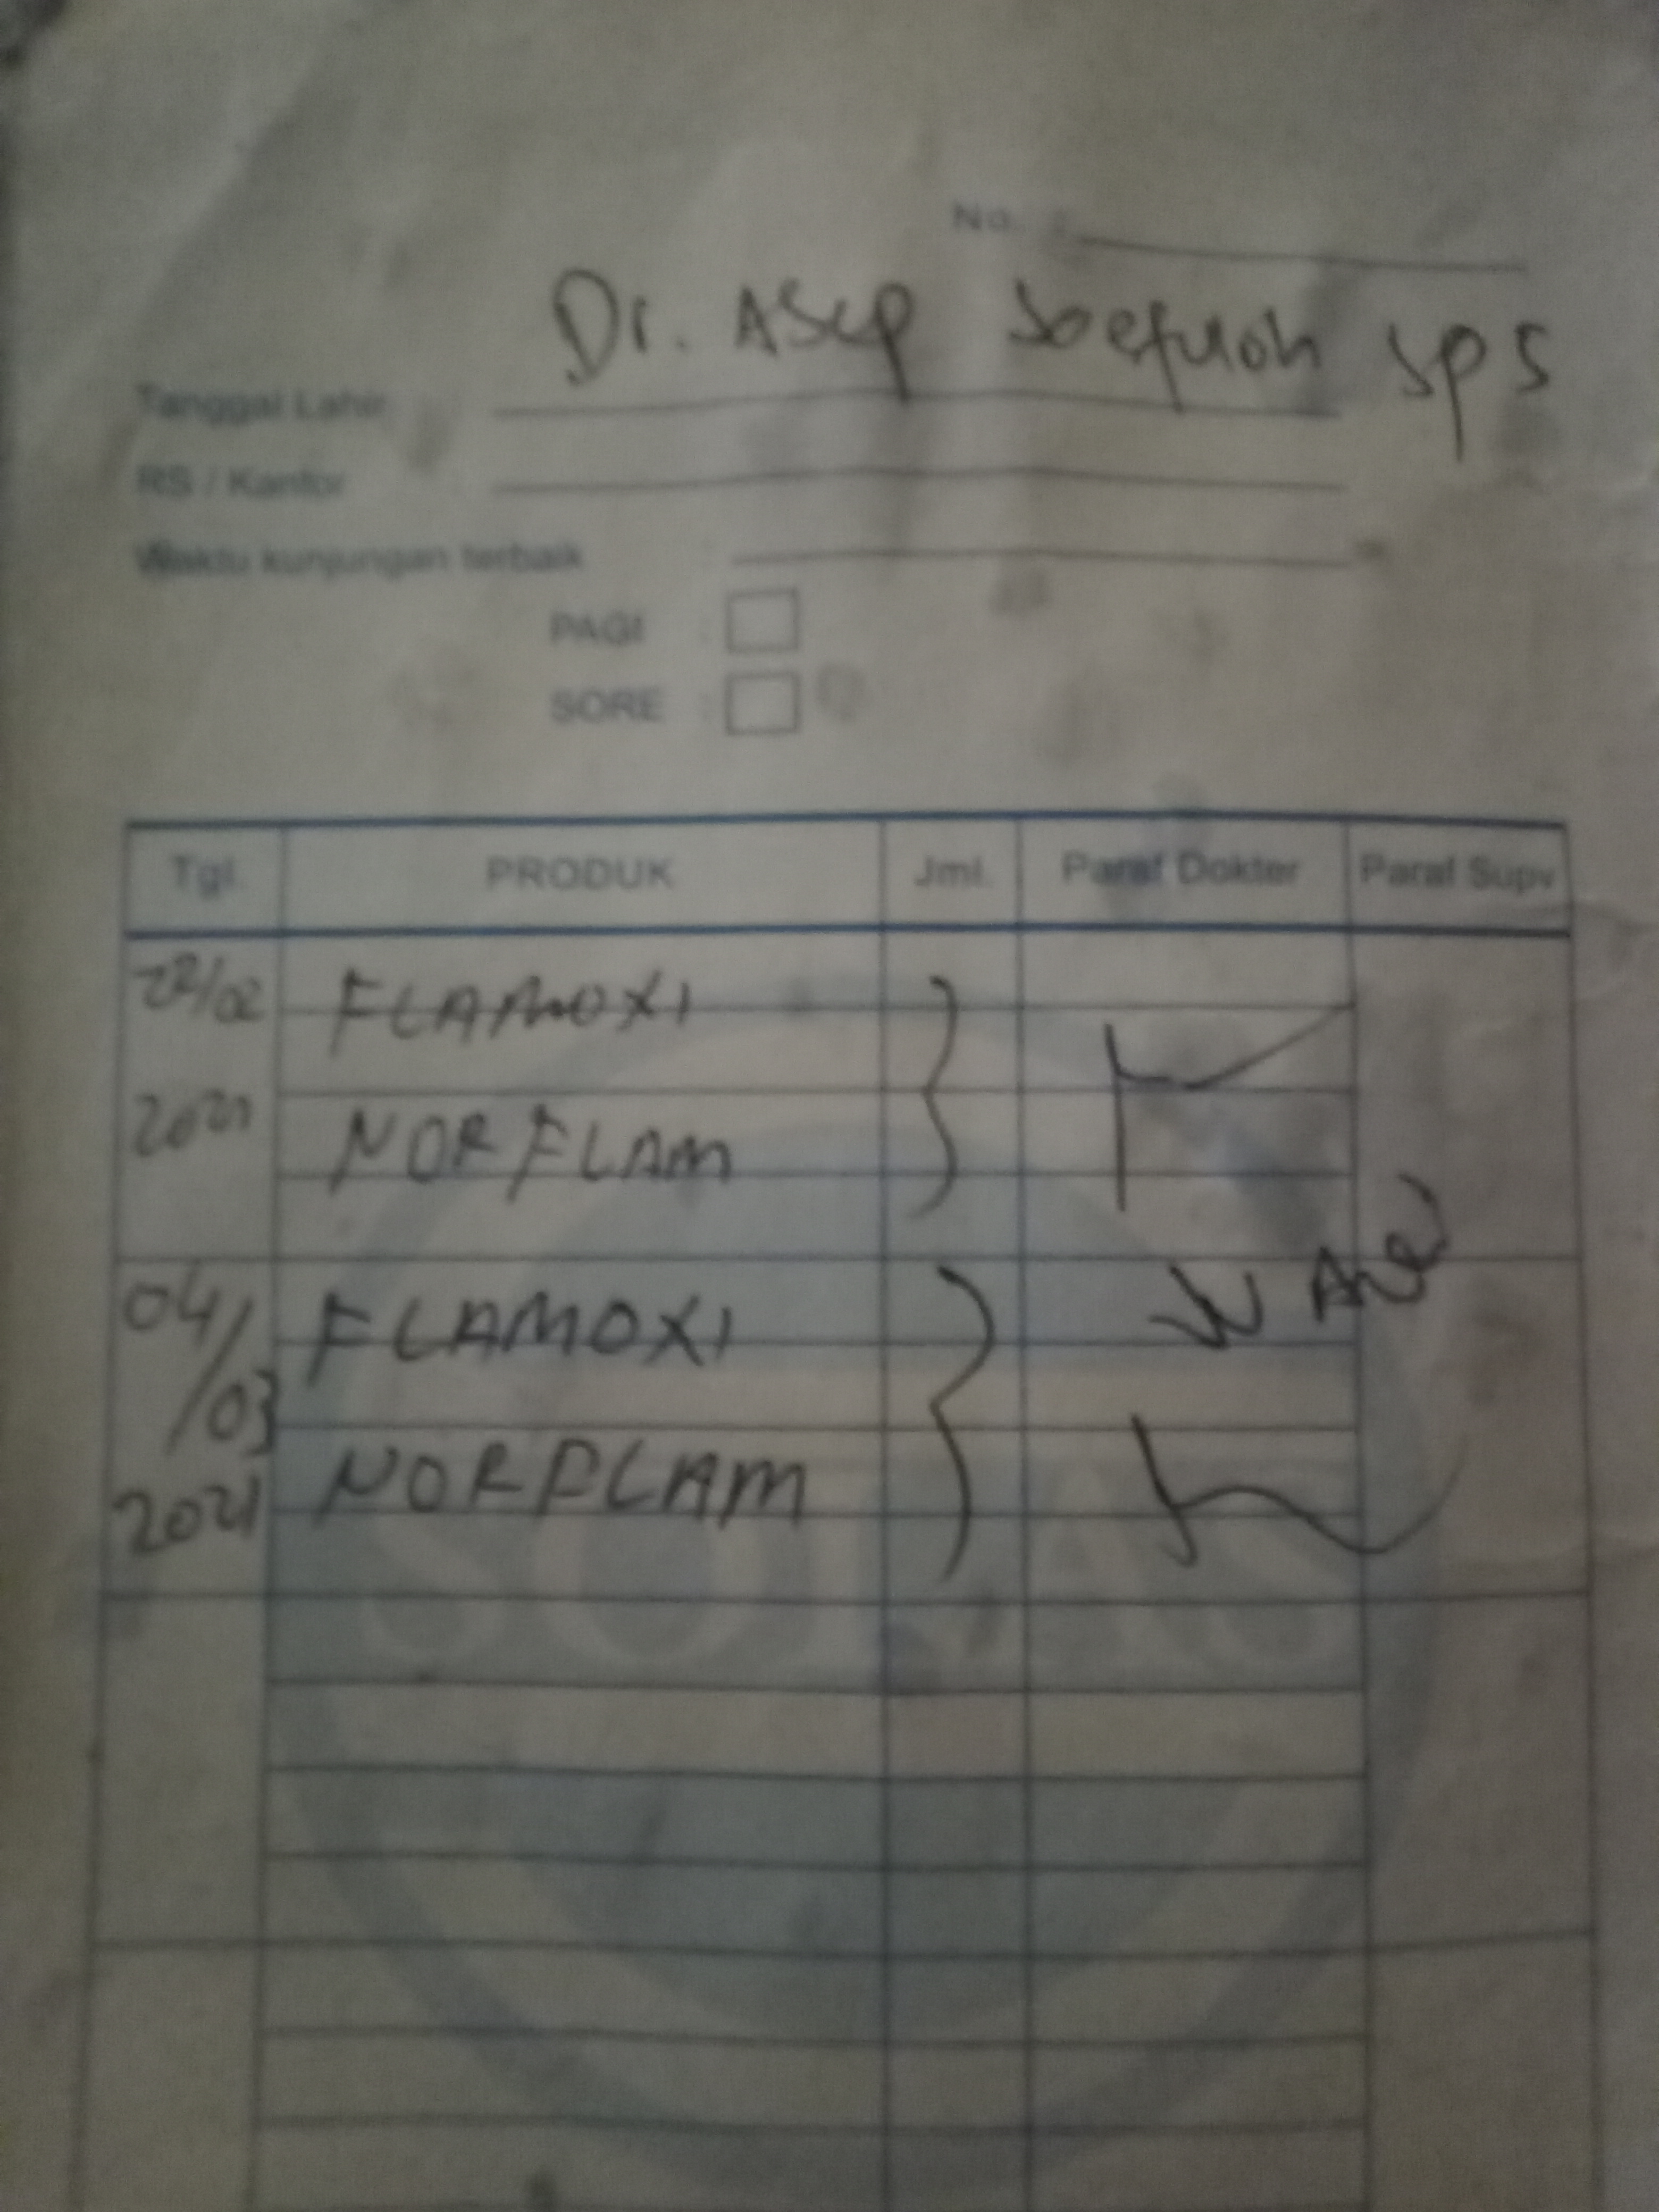 No. :
Dr. Asep Soefuoh SpS
Tanggal Lahir
RS / Kantor
Waktu kunjungan terbaik :
PAGI :
SORE :
Tgl. PRODUK Jml. Paraf Dokter Paraf Supv
22/02 FLAMOXI
2021 NORFLAM
04/03 FLAMOXI
2021 NORFLAM
SOLAS